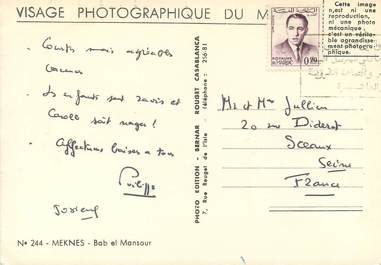 VISAGE PHOTOGRAPHIQUE DU M
Cette image
est ni une
reproduction,
ni une photo
mécanique,
c'est un vérita-
ble agrandisse-
ment photogra-
phique.
ROYAUME
DU MAROC
0,20
Courts mais agréables
vacances
Les enfants sont ravis et
Carole sait nager !
Affectueux baisers à tous
Philippe
Josiane
PHOTO EDITION - BERNAR ROUGET CASABLANCA
7, Rue Rouget de l'Isle - Téléphone : 256-81
Mr et Mme Jullien
20 rue Diderot
Sceaux
Seine
France
N° 244 - MEKNES - Bab el Mansour